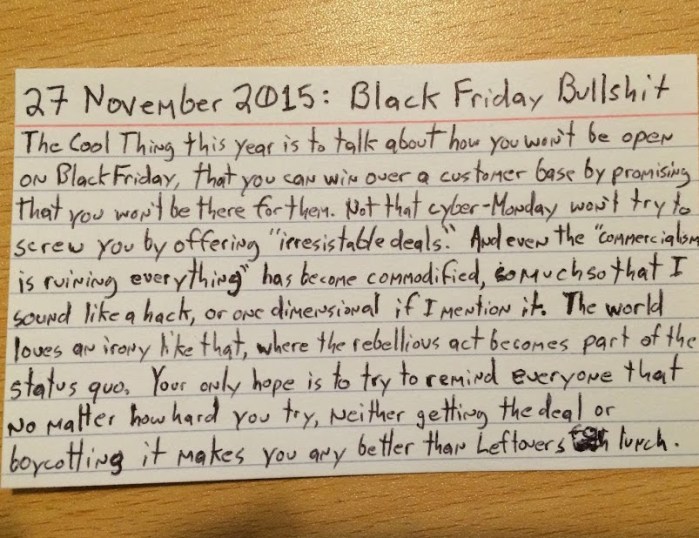 27 November 2015: Black Friday Bullshit
The Cool Thing this year is to talk about how you won't be open
on Black Friday, that you can win over a customer base by promising
that you won't be there for them. Not that cyber-Monday won't try to
screw you by offering "irresistable deals." And even the "commercialism
is ruining everything" has become commodified, so much so that I
sound like a hack, or one dimensional if I mention it. The world
loves an irony like that, where the rebellious act becomes part of the
status quo. Your only hope is to try to remind everyone that
no matter how hard you try, neither getting the deal or
boycotting it makes you any better than Leftovers lunch.